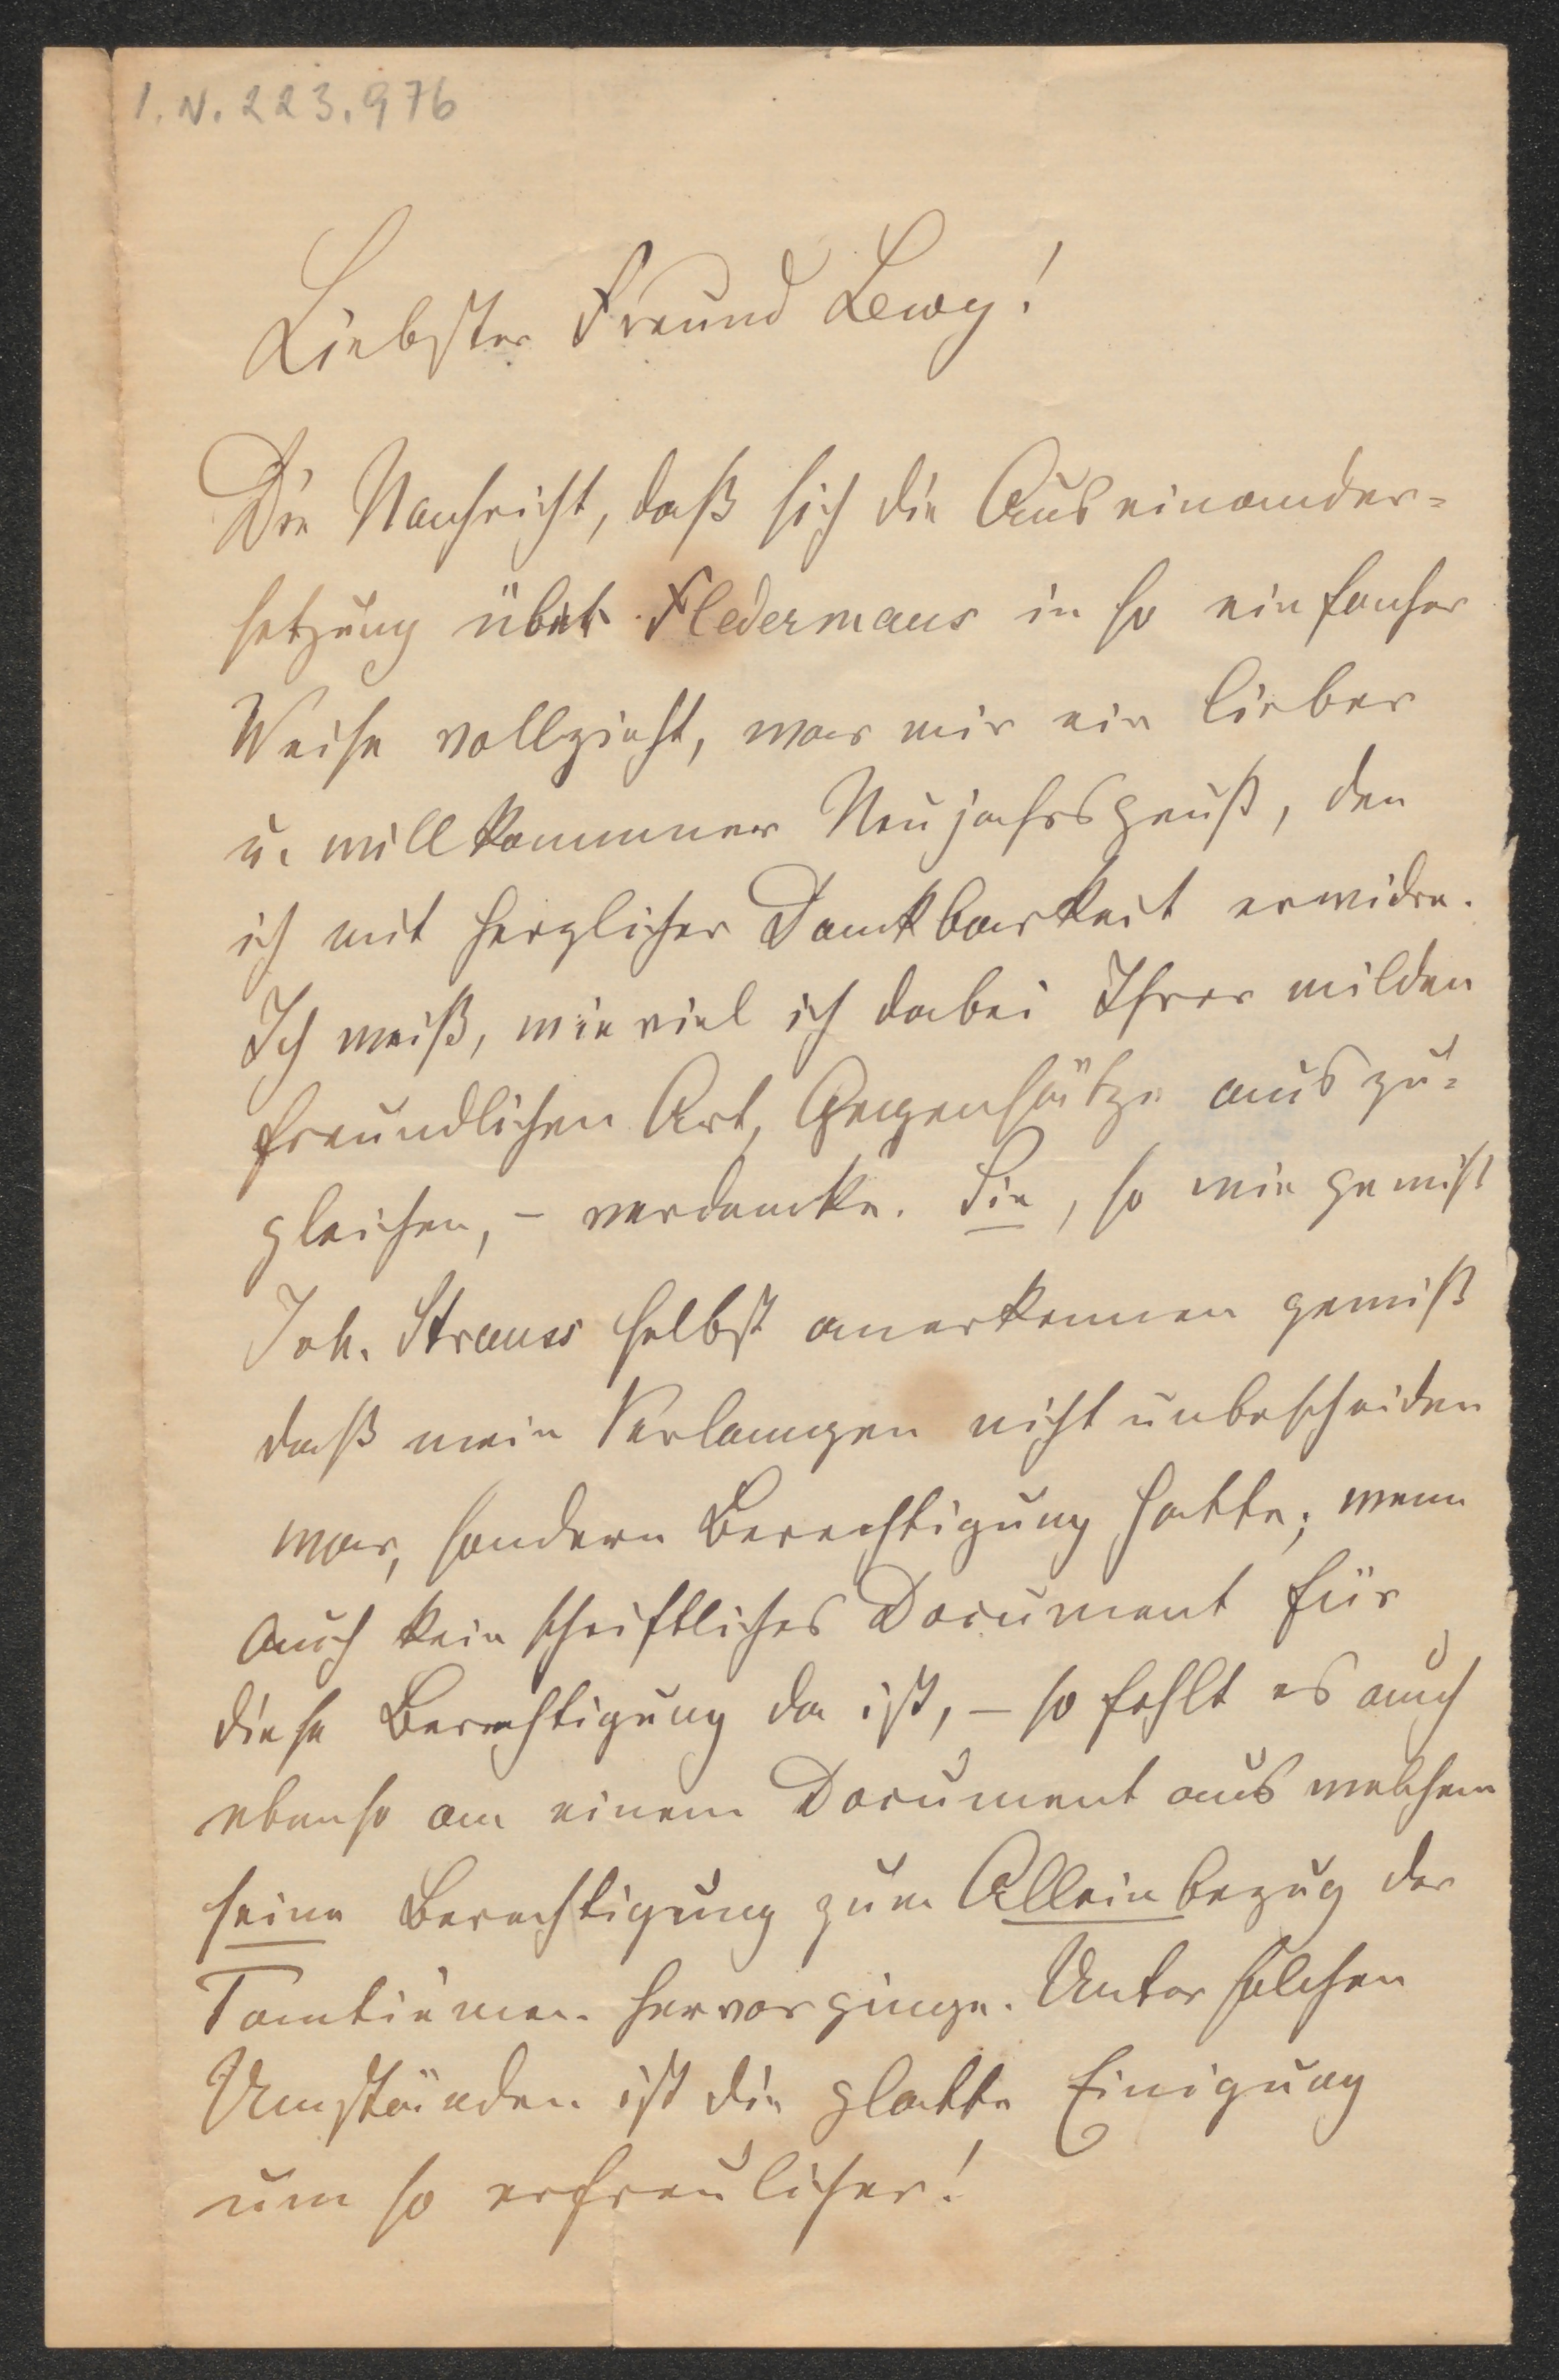 I. N. 223.976
Liebster Freund Lewy!
Die Nachricht, daß sich die Auseinander-
setzung über Fledermaus in so einfacher
Weise vollzieht, war mir ein lieber
u. willkommner Neujahrsgruß, den
ich mit herzlicher Dankbarkeit erwidre.
Ich weiß, wie viel ich dabei Ihrer milden
freundlichen Art, Gegensätze auszu-
gleichen, – verdanke. Sie, so wie gewiß
Joh. Strauss selbst anerkennen gewiß
daß mein Verlangen nicht unbescheiden
war, sondern Berechtigung hatte; wenn
auch kein schriftliches Document für
diese Berechtigung da ist, – so fehlt es auch
ebenso an einem Document aus welchem
seine Berechtigung zum Alleinbezug der
Tantièmen hervorginge. Unter solchen
Umständen ist die glatte Einigung
um so erfreulicher!